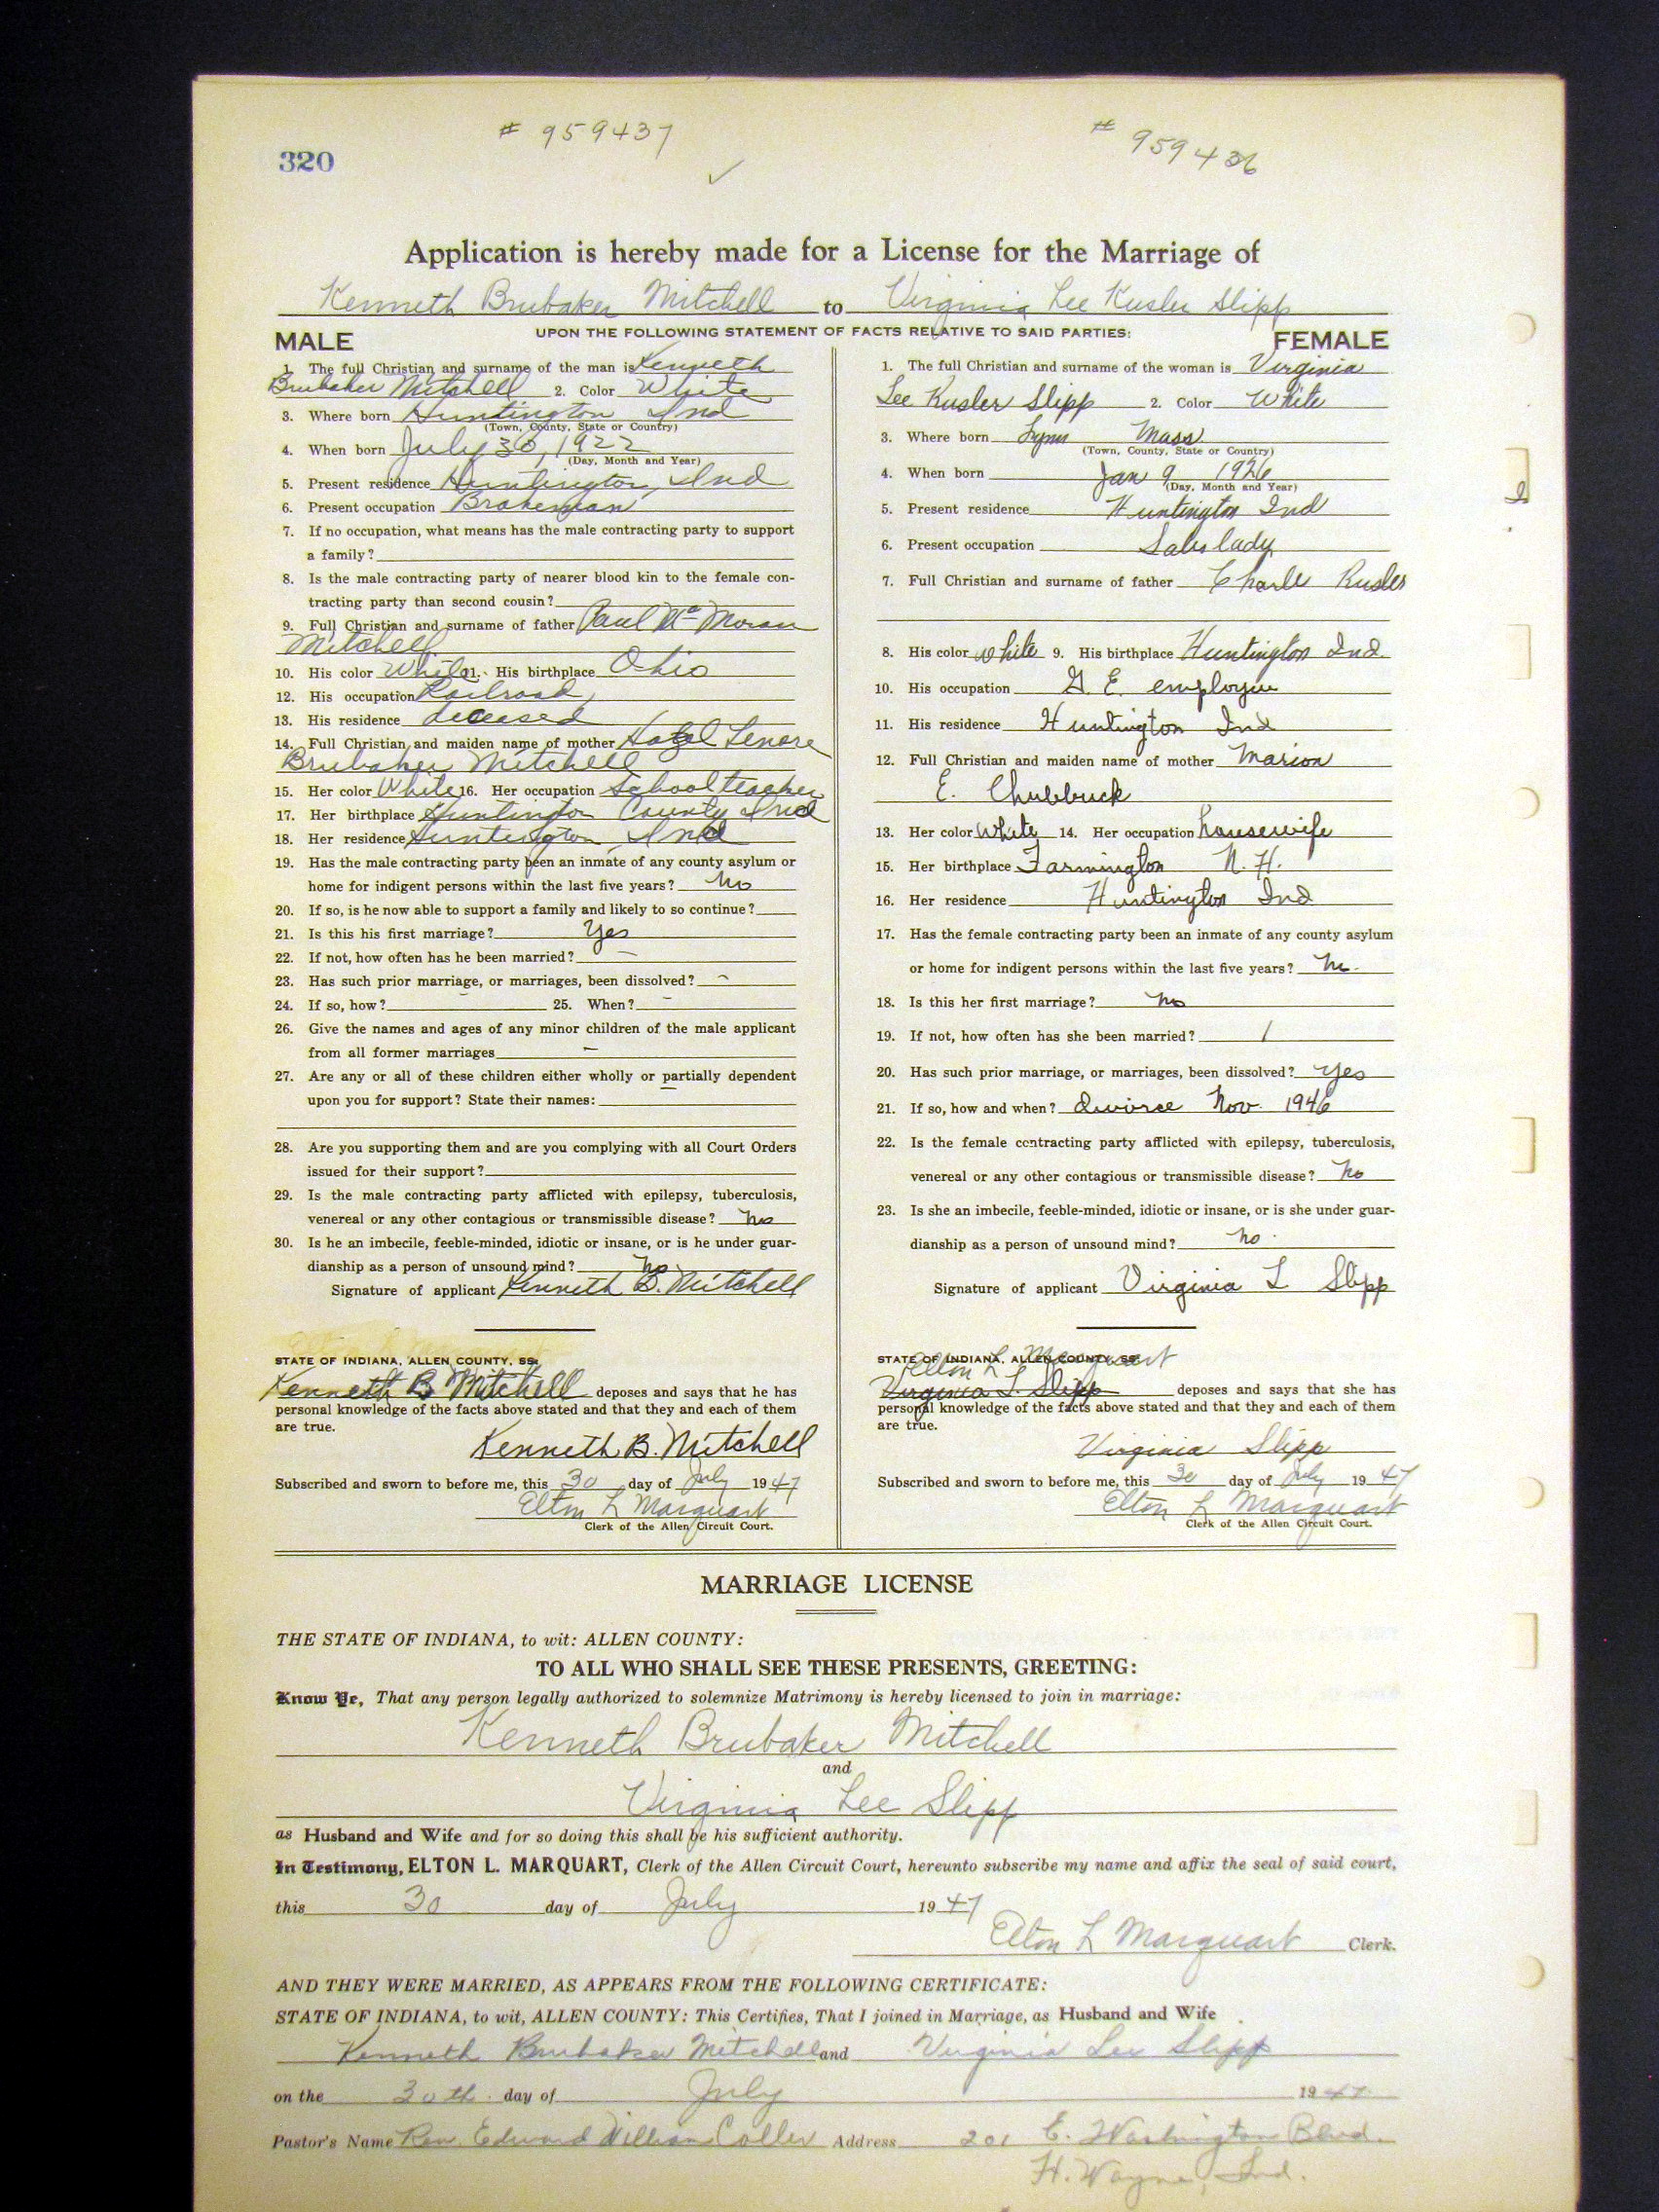 # 959437
# 959436
320
✓
Application is hereby made for a License for the Marriage of
Kenneth Brubaker Mitchell to Virginia Lee Kusler Slipp
UPON THE FOLLOWING STATEMENT OF FACTS RELATIVE TO SAID PARTIES:
MALE
1. The full Christian and surname of the man is Kenneth
Brubaker Mitchell 2. Color White
3. Where born Huntington Ind
(Town, County, State or Country)
4. When born July 30, 1922
(Day, Month and Year)
5. Present residence Huntington, Ind
6. Present occupation Brakeman
7. If no occupation, what means has the male contracting party to support
a family?
8. Is the male contracting party of nearer blood kin to the female con-
tracting party than second cousin?
9. Full Christian and surname of father Paul Mc Moran
Mitchell
10. His color White 11. His birthplace Ohio
12. His occupation Railroad
13. His residence deceased
14. Full Christian and maiden name of mother Hazel Lenore
Brubaker Mitchell
15. Her color White 16. Her occupation School teacher
17. Her birthplace Huntington County Ind
18. Her residence Huntington, Ind
19. Has the male contracting party been an inmate of any county asylum or
home for indigent persons within the last five years? No
20. If so, is he now able to support a family and likely to so continue?
21. Is this his first marriage? Yes
22. If not, how often has he been married? -
23. Has such prior marriage, or marriages, been dissolved? -
24. If so, how? - 25. When? -
26. Give the names and ages of any minor children of the male applicant
from all former marriages -
27. Are any or all of these children either wholly or partially dependent
upon you for support? State their names: -
28. Are you supporting them and are you complying with all Court Orders
issued for their support?
29. Is the male contracting party afflicted with epilepsy, tuberculosis,
venereal or any other contagious or transmissible disease? No
30. Is he an imbecile, feeble-minded, idiotic or insane, or is he under guar-
dianship as a person of unsound mind? No
Signature of applicant Kenneth B. Mitchell
STATE OF INDIANA, ALLEN COUNTY, SS:
Kenneth B Mitchell deposes and says that he has
personal knowledge of the facts above stated and that they and each of them
are true.
Kenneth B. Mitchell
Subscribed and sworn to before me, this 30 day of July 1947
Elton L Marquart
Clerk of the Allen Circuit Court.
FEMALE
1. The full Christian and surname of the woman is Virginia
Lee Kusler Slipp 2. Color White
3. Where born Lynn Mass
(Town, County, State or Country)
4. When born Jan 9 1926
(Day, Month and Year)
5. Present residence Huntington Ind
6. Present occupation Saleslady
7. Full Christian and surname of father Charle Kusler
8. His color white 9. His birthplace Huntington Ind.
10. His occupation G. E. employee
11. His residence Huntington Ind
12. Full Christian and maiden name of mother Marion
E. Chubbuck
13. Her color White 14. Her occupation housewife
15. Her birthplace Farmington N. H.
16. Her residence Huntington Ind
17. Has the female contracting party been an inmate of any county asylum
or home for indigent persons within the last five years? No.
18. Is this her first marriage? No
19. If not, how often has she been married? 1
20. Has such prior marriage, or marriages, been dissolved? yes
21. If so, how and when? divorce Nov. 1946
22. Is the female contracting party afflicted with epilepsy, tuberculosis,
venereal or any other contagious or transmissible disease? No
23. Is she an imbecile, feeble-minded, idiotic or insane, or is she under guar-
dianship as a person of unsound mind? no.
Signature of applicant Virginia L Slipp
STATE OF INDIANA, ALLEN COUNTY, SS:
Elton L Marquart
Virginia L. Slipp deposes and says that she has
personal knowledge of the facts above stated and that they and each of them
are true.
Virginia Slipp
Subscribed and sworn to before me, this 30 day of July 1947
Elton L Marquart
Clerk of the Allen Circuit Court.
MARRIAGE LICENSE
THE STATE OF INDIANA, to wit: ALLEN COUNTY:
TO ALL WHO SHALL SEE THESE PRESENTS, GREETING:
Know Ye, That any person legally authorized to solemnize Matrimony is hereby licensed to join in marriage:
Kenneth Brubaker Mitchell
and
Virginia Lee Slipp
as Husband and Wife and for so doing this shall be his sufficient authority.
In Testimony, ELTON L. MARQUART, Clerk of the Allen Circuit Court, hereunto subscribe my name and affix the seal of said court,
this 30 day of July 1947
Elton L Marquart Clerk.
AND THEY WERE MARRIED, AS APPEARS FROM THE FOLLOWING CERTIFICATE:
STATE OF INDIANA, to wit, ALLEN COUNTY: This Certifies, That I joined in Marriage, as Husband and Wife
Kenneth Brubaker Mitchell and Virginia Lee Slipp
on the 30th day of July 1947
Pastor's Name Rev. Edward William Coller Address 201 E. Washington Blvd.
Ft. Wayne, Ind.